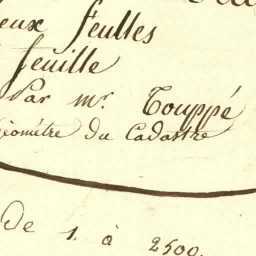 eux feulles
feuille
Par mr. Touppé
Géométre du Cadastre
De 1. à 2500.